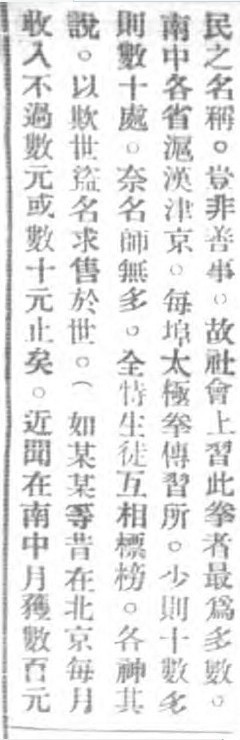 民之名稱。豈非善事。故社會上習此拳者最爲多數。
南中各省滬漢津京。每埠太極拳傳習所。少則十數多
則數十處。奈名師無多。全恃生徒互相標榜。各神其
說。以欺世盜名求售於世。(如某某等昔在北京每月
收入不過數元或數十元止矣。近聞在南中月獲數百元